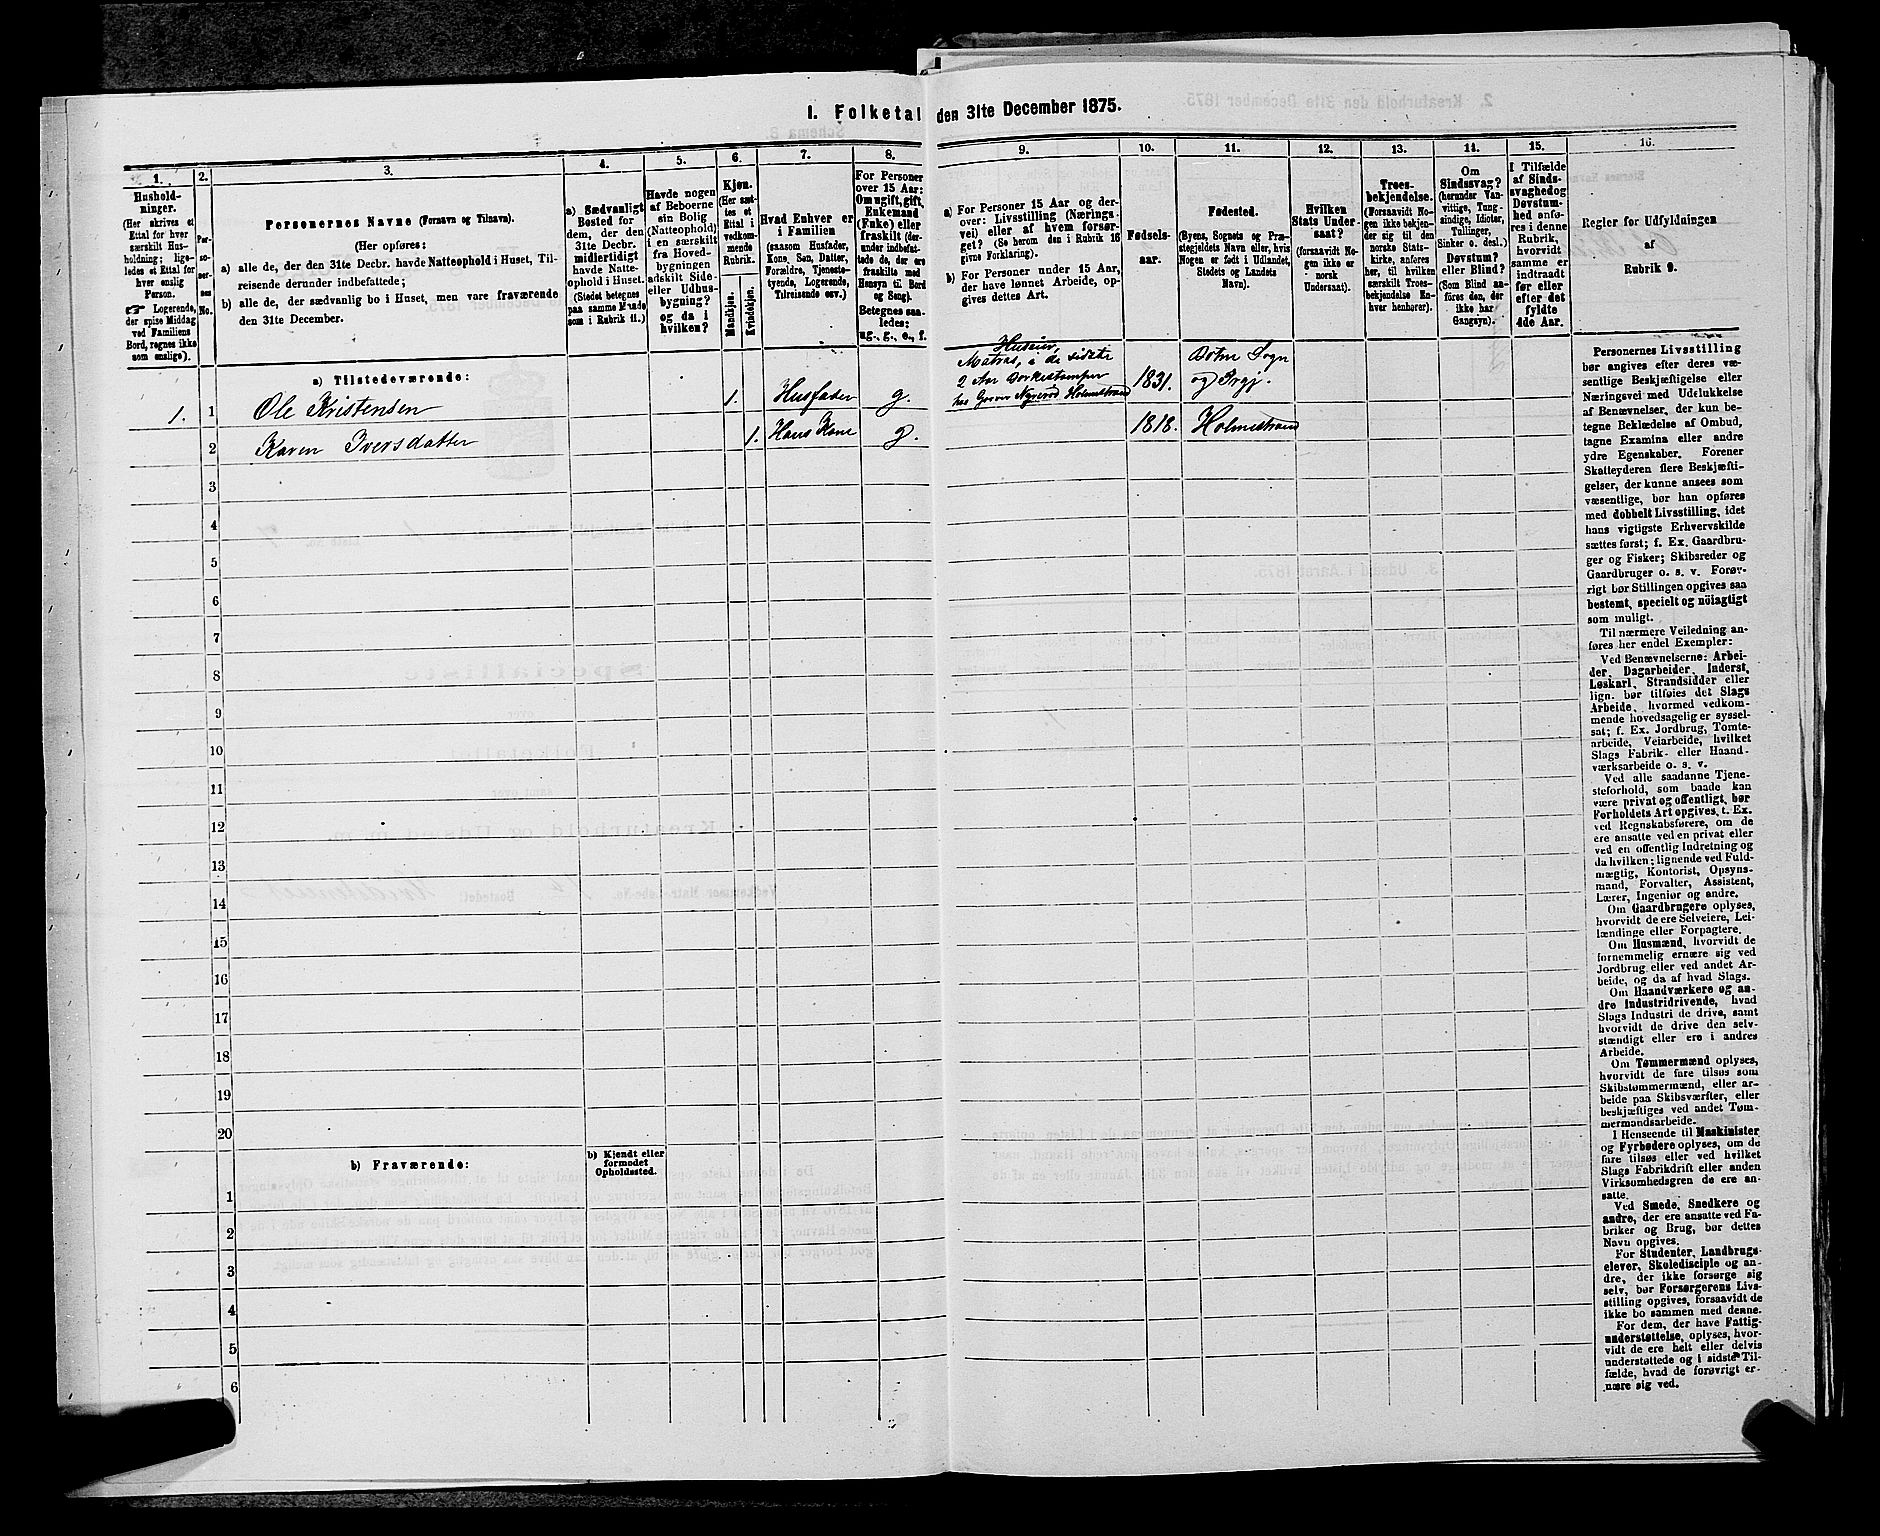 I. Folketal den 31te December 1875.
1.
Hushold-
ninger.
(Her skrives et
Ettal for hver
særskilt Hus-
holdning; lige-
ledes et Ettal for
hver enslig
Person.
☞ Logerende,
der spise Middag
ved Familiens
Bord, regnes ikke
som enslige).
2.
Per-
so-
ner-
nes
No.
3.
Personernes Navne (Fornavn og Tilnavn).
(Her opføres:
a) alle de, der den 31te Decbr. havde Natteophold i Huset, Til-
reisende derunder indbefattede;
b) alle de, der sædvanlig bo i Huset, men vare fraværende
den 31te December.
4.
a) Sædvanligt
Bosted for
dem, der den
31te Decbr.
midlertidigt
havde Natte-
ophold i Huset.
(Stedet betegnes
paa samme Maade
som i Rubrik 11.)
5.
Havde nogen
af Beboerne
sin Bolig
(Natteophold)
i en særskilt
fra Hoved-
bygningen
adskilt Side-
eller Udhus-
bygning?
og da i
hvilken?
6.
Kjøn.
(Her sæt-
tes et
Ettal i
vedkom-
mende
Rubrik.
Mandkjøn.
Kvindekjøn.
7.
Hvad Enhver er
i Familien
(saasom Husfader,
Kone, Søn, Datter,
Forældre, Tjeneste-
tyende, Logerende,
Tilreisende osv.)
8.
For Personer
over 15 Aar:
Om ugift, gift,
Enkemand
(Enke) eller
fraskilt (der-
under indbefat-
tede de, der ere
fraskilte med
Hensyn til Bord
og Seng).
Betegnes saa-
ledes:
ug., g., e., f.
9.
a) For Personer 15 Aar og der-
over: Livsstilling (Nærings-
vei) eller af hvem forsør-
get? (Se herom den i Rubrik 16
givne Forklaring).
b) For Personer under 15 Aar,
der have lønnet Arbeide, op-
gives dettes Art.
10.
Fødsels-
aar.
11.
Fødested.
(Byens, Sognets og Præ-
stegjeldets Navn eller, hvis
Nogen er født i Udlandet,
Stedets og Landets
Navn).
12.
Hvilken
Stats Under-
saat?
(forsaavidt No-
gen ikke er
norsk
Undersaat).
13.
Troes-
bekjendelse.
(Forsaavidt No-
gen ikke bekjen-
der sig til den
norske Stats-
kirke, anføres
her, til hvilken
særskilt Troes-
bekjendelse En-
hver henhører).
14.
Om
Sindssvag?
(herunder Van-
vittige, Tung-
sindige, Idioter,
Tullinger,
Sinker o. desl.)
Døvstum?
eller Blind?
(Som Blind an-
føres den, der
ikke har
Gangsyn).
15.
I Tilfælde
af Sinds-
svaghed og
Døvstum-
hed anfø-
res i denne
Rubrik,
hvorvidt
samme er
indtraadt
før eller
efter det
fyldte
4de Aar.
16.
Regler for Udfyldningen
af
Rubrik 9.
a) Tilstedeværende:
1. 1 Ole Kristensen 1. Husfader g. Huseier, Matros, i de sidste 2 Aar 1831. Botne Sogn og Prgj.
2 Karen Iversdatter 1. Hans Kone g. 1818. Holmestrand
3
4
5
6
7
8
9
10
11
12
13
14
15
16
17
18
19
20
b) Fraværende:
b) Kjendt eller
formodet
Opholdssted.
1
2
3
4
5
6
Personernes Livsstilling
bør angives efter deres væ-
sentlige Beskjæftigelse eller
Næringsvei med Udelukkelse
af Benævnelser, der kun be-
tegne Beklædelse af Ombud,
tagne Examina eller andre
ydre Egenskaber. Forener
Skatteyderen flere Beskjæfti-
gelser, der kunne ansees som
væsentlige, bør han opføres
med dobbelt Livsstilling, idet
hans vigtigste Erhvervskilde
sættes først; f. Ex. Gaardbru-
ger og Fisker; Skibsreder og
Gaardbruger o. s. v. Forøv-
rigt bør Stillingen opgives saa
bestemt, specielt og nöiagtigt
som muligt.
Til nærmere Veiledning an-
føres her endel Exempler:
Ved Benævnelserne: Arbei-
der, Dagarbeider, Inderst,
Løskarl, Strandsidder eller
lign. bør tilføies det Slags
Arbeide, hvormed vedkom-
mende hovedsagelig er syssel-
sat; f. Ex. Jordbrug, Tomte-
arbeide, Veiarbeide, hvilket
Slags Fabrik- eller Haand-
værksarbeide o. s. v.
Ved alle saadanne Tjene-
steforhold, som baade kan
være privat og offentligt, bør
Forholdets Art opgives, t. Ex.
ved Regnskabsførere, om de
ere ansatte ved en privat eller
ved en offentlig Indretning og
da hvilken; lignende ved Fuld-
mægtig, Kontorist, Opsyns-
mand, Forvalter, Assistent,
Lærer, Ingeniør og andre.
Om Gaardbrugere oplyses,
hvorvidt de ere Selveiere, Lei-
lændinge eller Forpagtere.
Om Husmænd, hvorvidt de
fornemmelig ernære sig ved
Jordbrug eller ved andet Ar-
beide, og da af hvad Slags.
Om Haandværkere og an-
dre Industridrivende, hvad
Slags Industri de drive, samt
hvorvidt de drive den selv-
stændigt eller ere i andres
Arbeide.
Om Tømmermænd oplyses,
hvorvidt de fare tilsøs som
Skibstømmermænd, eller ar-
beide paa Skibsværfter, eller
beskjæftiges ved andet Tøm-
mermandsarbeide.
I Henseende til Maskinister
og Fyrbødere oplyses, om de
fare tilsøs eller ved hvilket
Slags Fabrikdrift eller anden
Virksomhedsgren de ere an-
satte.
Ved Smede, Snedkere og
andre, der ere ansatte ved Fa-
briker og Brug, bør dettes
Navn opgives.
For Studenter, Landbrugs-
elever, Skoledisciple og an-
dre, der ikke forsørge sig
selv, bør Forsørgerens Livs-
stilling opgives, forsaavidt de
ikke bo sammen med denne.
For dem, der have Fattig-
understøttelse, oplyses, hvor-
vidt de ere helt eller delvis
understøttede og i sidste Til-
fælde, hvad de forøvrigt er-
nære sig ved.